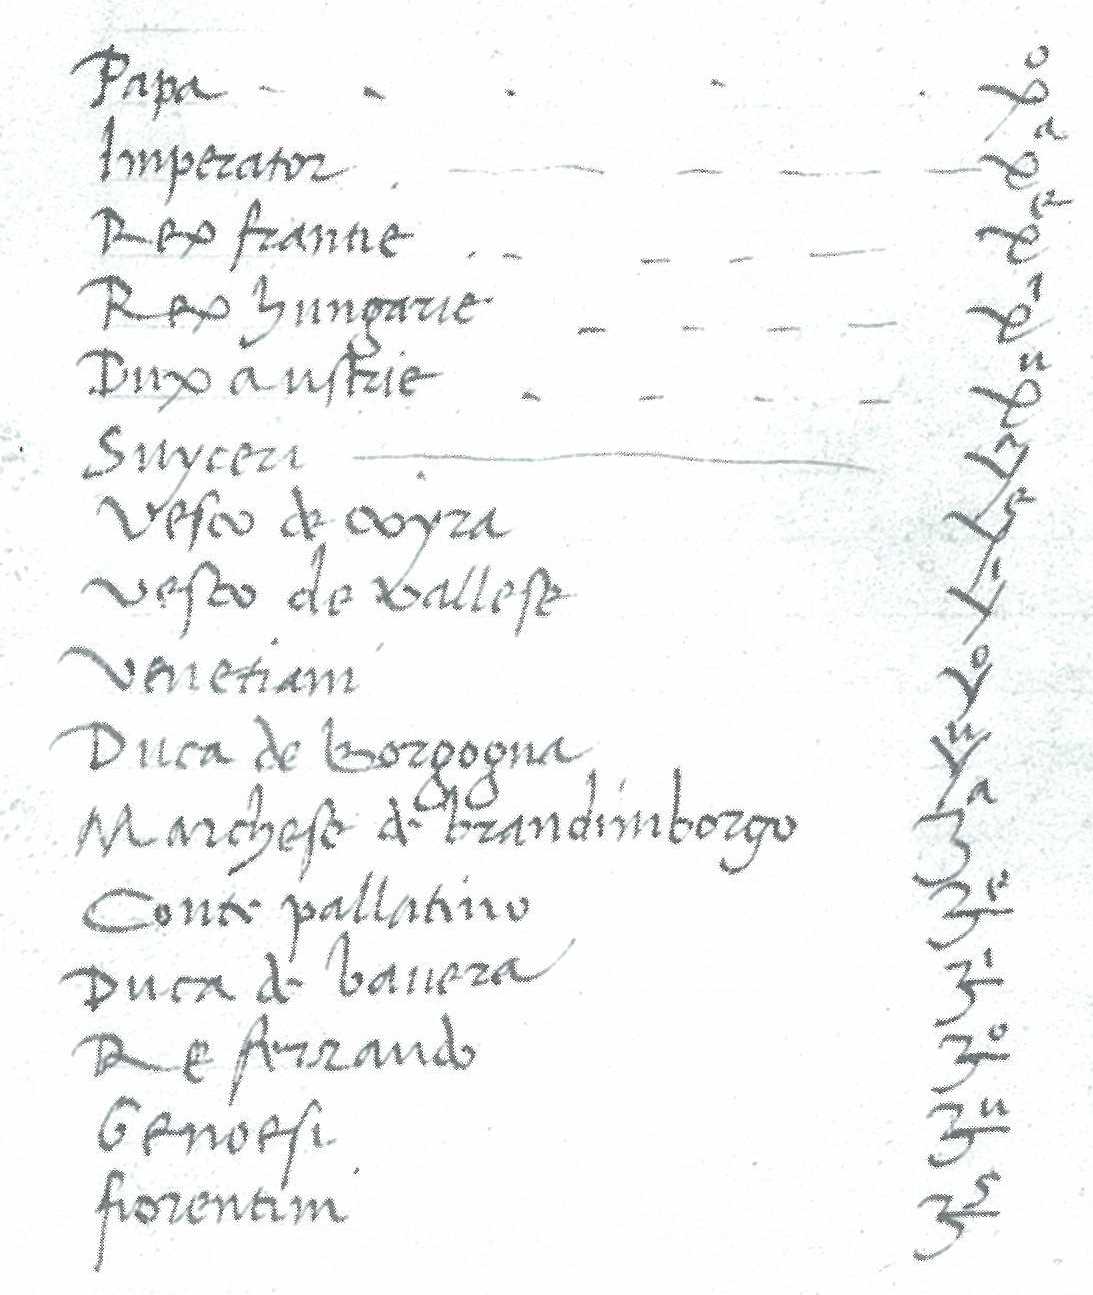 Papa
Imperator
Rex francie
Rex hungarie
Dux austrie
Suyceri
Vesco de coyra
Vesco de vallese
Venetiani
Duca de borgogna
Marchese de brandimborgo
Conte pallatino
Duca de bavera
Re ferrando
Genoesi
fiorentini